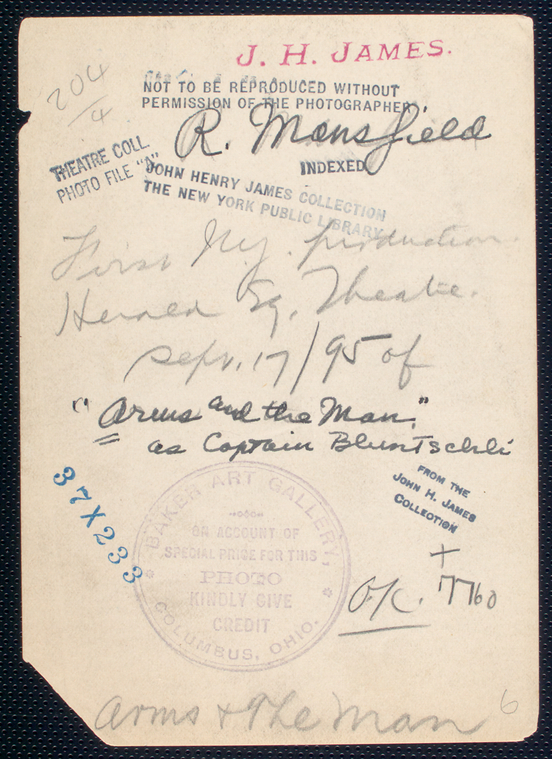 J. H. JAMES.
204/4
NOT TO BE REPRODUCED WITHOUT
PERMISSION OF THE PHOTOGRAPHER
R. Mansfield
INDEXED
THEATRE COLL.
PHOTO FILE "A"
JOHN HENRY JAMES COLLECTION
THE NEW YORK PUBLIC LIBRARY
First N.Y. production
Herald Sq. Theatre.
Sept. 17/95 of
"Arms and the Man."
as Captain Bluntschli
FROM THE
JOHN H. JAMES
COLLECTION
37X233
BAKER ART GALLERY,
ON ACCOUNT OF
SPECIAL PRICE FOR THIS
PHOTO
KINDLY GIVE
CREDIT
COLUMBUS, OHIO.
+
O.K.
Arms + The Man
6